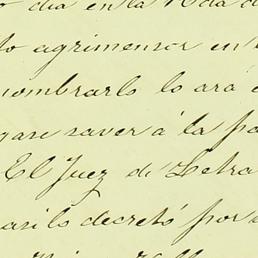 dia en la
agrimensor en
nombrarlo lo ará
gase saver á la pa
El Juez de Letra
asi lo decretó por